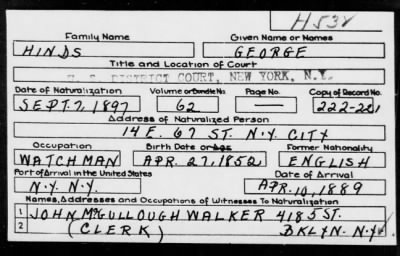 H532
Family Name Given Name or Names
HINDS GEORGE
Title and Location of Court
U. S. DISTRICT COURT, NEW YORK, N.Y.
Date of Naturalization Volume or Bundle No. Page No. Copy of Record No.
SEPT. 7, 1897 62 — 222-221
Address of Naturalized Person
14 E. 67 ST. N.Y. CITY
Occupation Birth Date or Age Former Nationality
WATCHMAN APR. 27, 1852 ENGLISH
Port of Arrival in the United States Date of Arrival
N.Y. N.Y. APR. 10, 1889
Names, Addresses and Occupations of Witnesses To Naturalization
1 JOHN McGULLOUGH WALKER 418 5 ST.
2 (CLERK) BKLYN. N.Y.